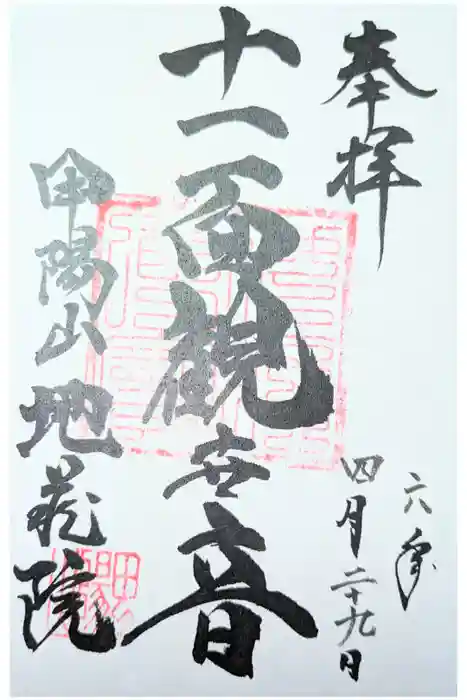 奉拝
六年
四月二十九日
十一面観世音
甲陽山地蔵院